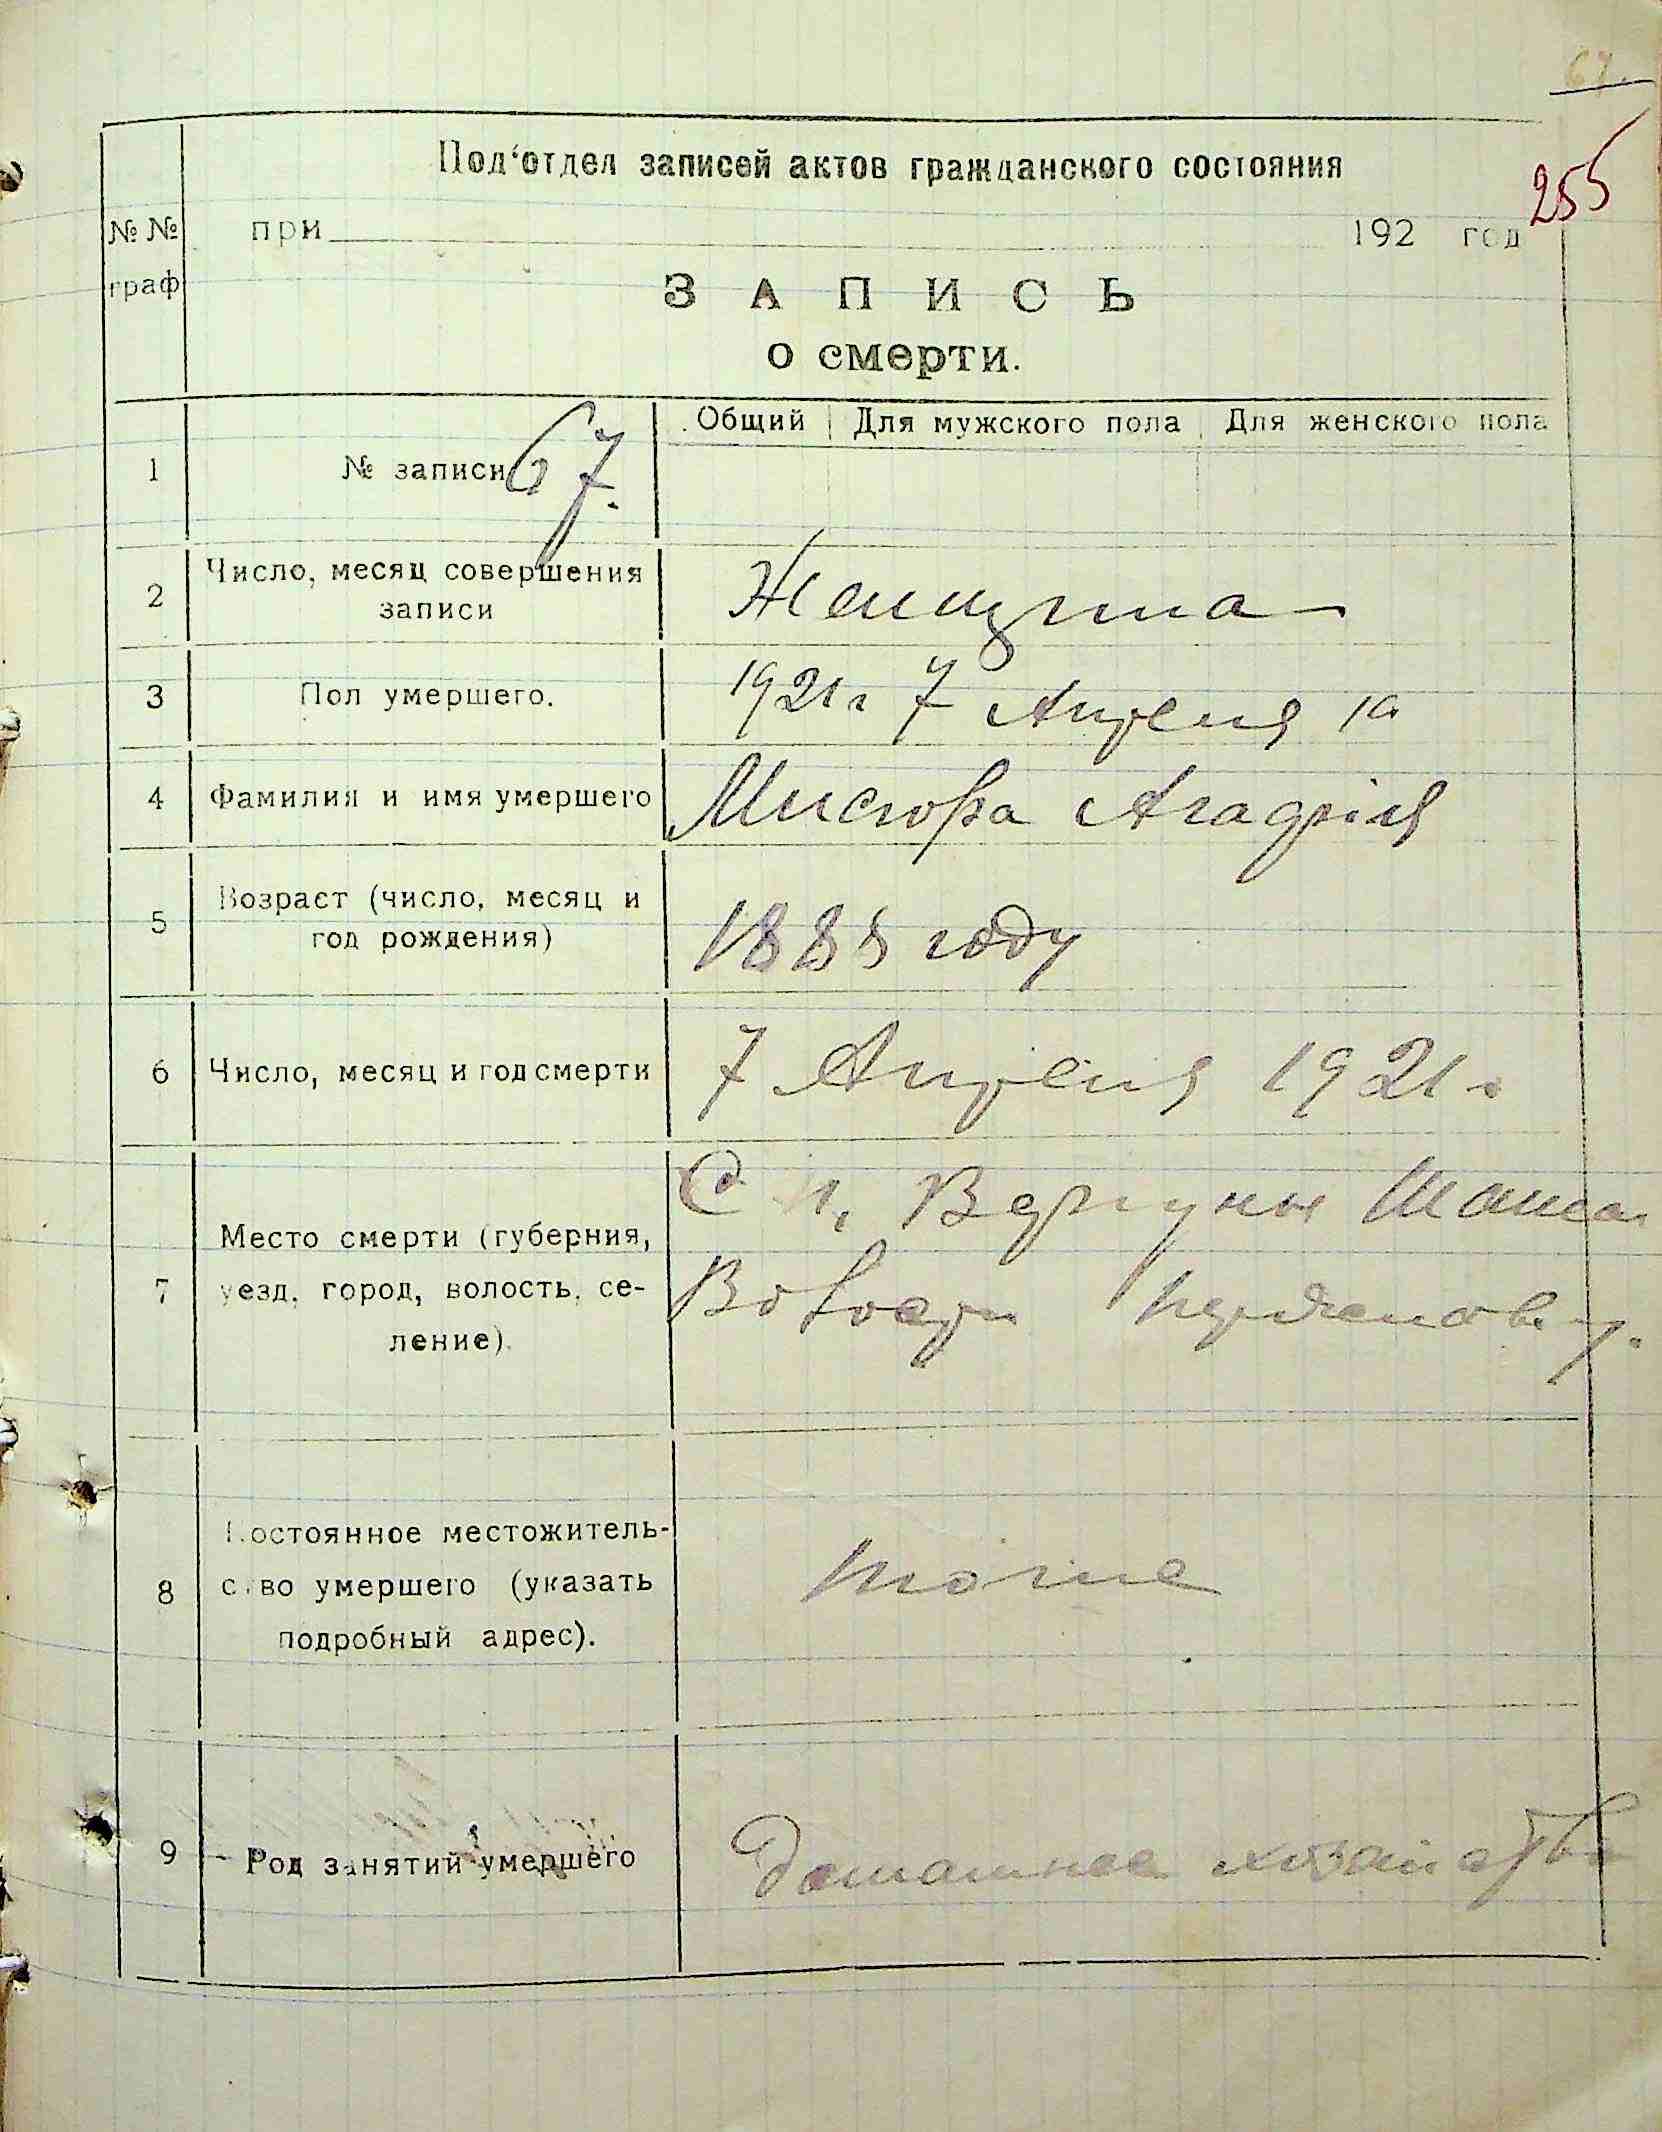 67.
255
Под'отдел записей актов гражданского состояния
№ № граф
при 192 год
ЗАПИСЬ
о смерти.
Общий Для мужского пола Для женского пола
1 № записи 67.
2 Число, месяц совершения записи Женщина
3 Пол умершего. 1921 г 7 Апреля
4 Фамилия и имя умершего
5 Возраст (число, месяц и год рождения) 1885 году
6 Число, месяц и год смерти 7 Апреля 1921 г
7 Место смерти (губерния, уезд, город, волость, селение). Вергуны
Волости
8 Постоянное местожительство умершего (указать подробный адрес). тоже
9 Род занятий умершего Домашнее хозайство